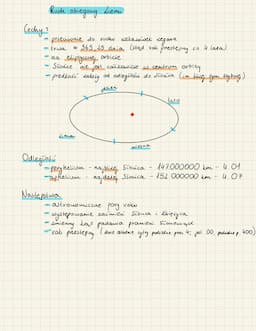 Ruch obiegowy Ziemi
Cechy:
- przeciwnie do ruchu wskazówek zegara
- trwa ≈ 365,25 dnia (stąd rok przestępny co 4 lata)
- po eliptycznej orbicie
- Słońce nie jest w centrum orbity
- prędkość zależy od odległości do Słońca (im bliżej tym szybciej)
lato
zima
wiosna
Odległości
- peryhelium - najbliżej Słońca - 147.000.000 km - 4.01
- aphelium - najdalej Słońca - 152.000.000 km - 4.07
Następstwa
- astronomiczne pory roku
- występowanie zaćmień Słońca i Księżyca
- zmienny kąt padania promieni słonecznych
- rok przestępny (dwie ostatnie cyfry podzielne przez 4; jeśli 00, podzielne p. 400)